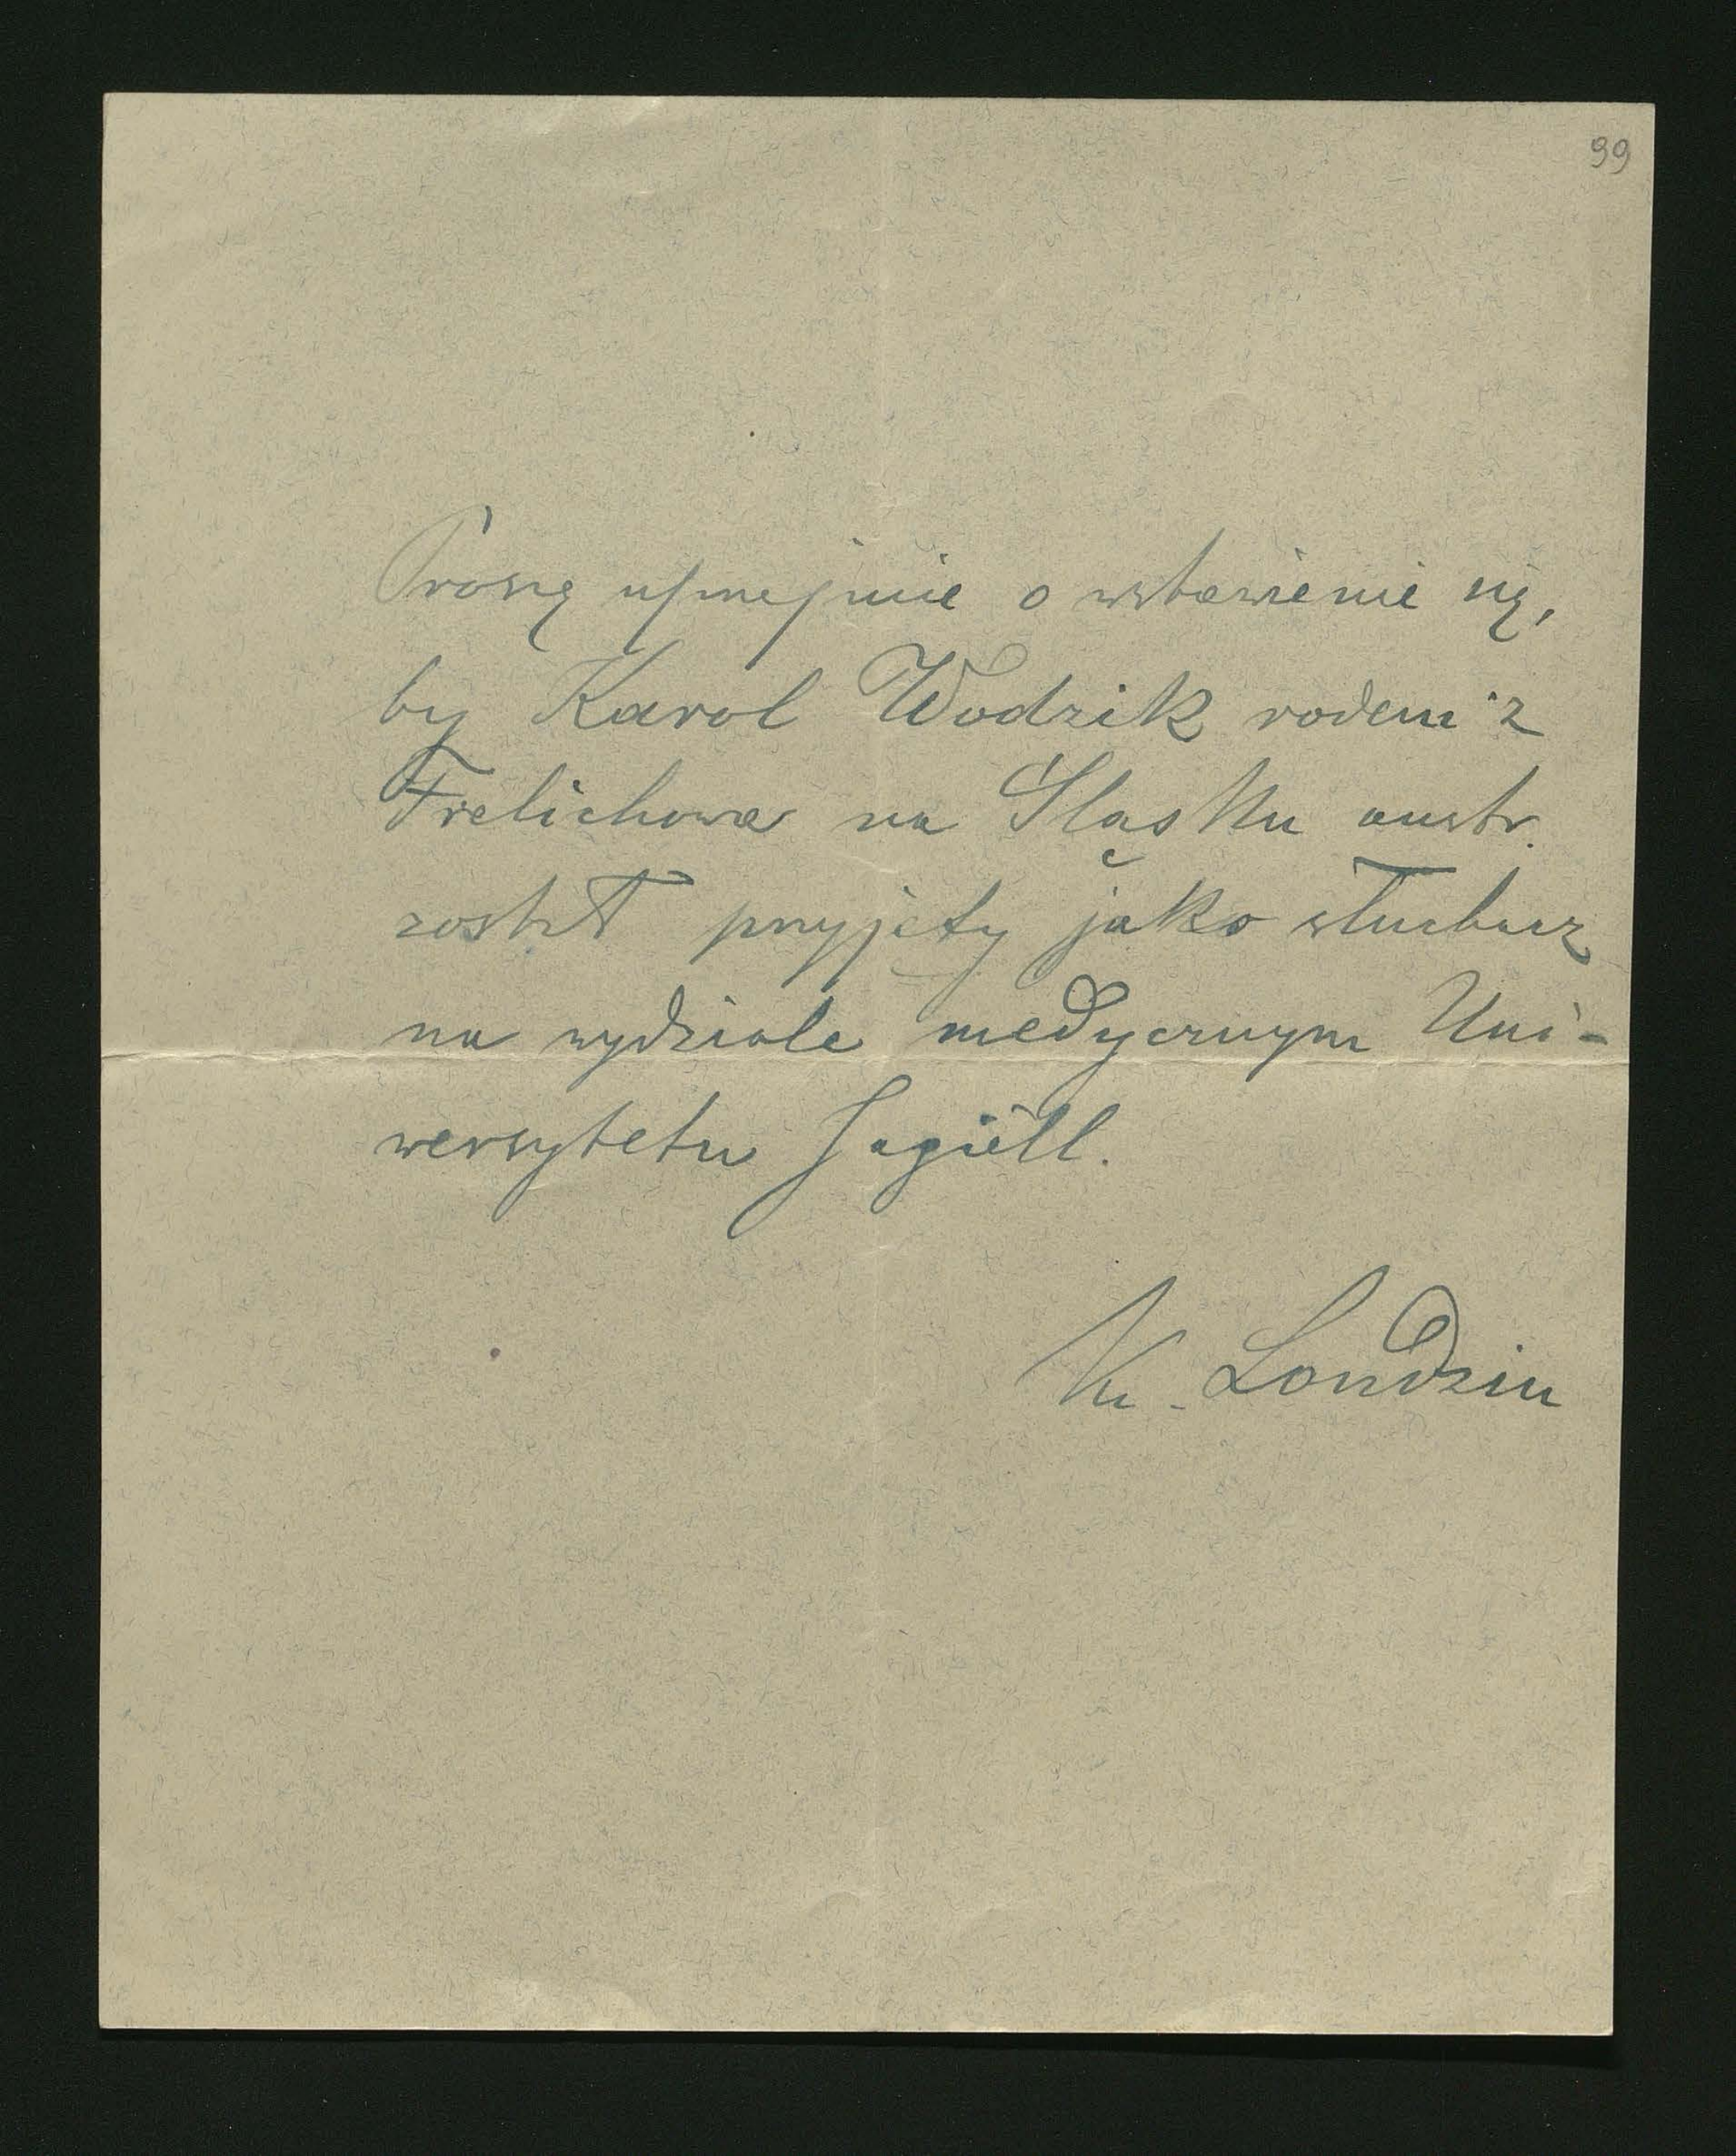 99
Proszę uprzejmie o wstawienie się,
by Karol Wodzik rodem z
Frelichowa na Śląsku austr.
został przyjęty jako słuchacz
na wydziale medycznym Uni-
wersytetu Jagiell.
Ks. Londzin